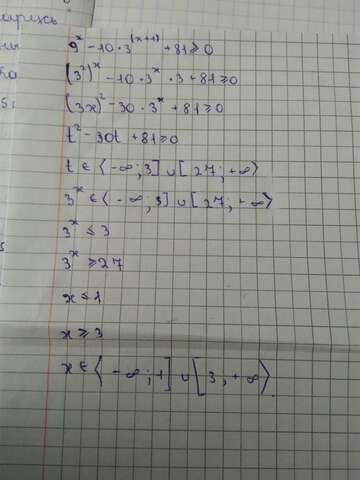 9^x - 10 · 3^(x+1) + 81 ≥ 0
(3²)^x - 10 · 3^x · 3 + 81 ≥ 0
(3x)² - 30 · 3^x + 81 ≥ 0
t² - 30t + 81 ≥ 0
t ∈ (-∞; 3] ∪ [27; +∞)
3^x ∈ (-∞; 3] ∪ [27; +∞)
3^x ≤ 3
3^x ≥ 27
x ≤ 1
x ≥ 3
x ∈ (-∞; 1] ∪ [3; +∞)